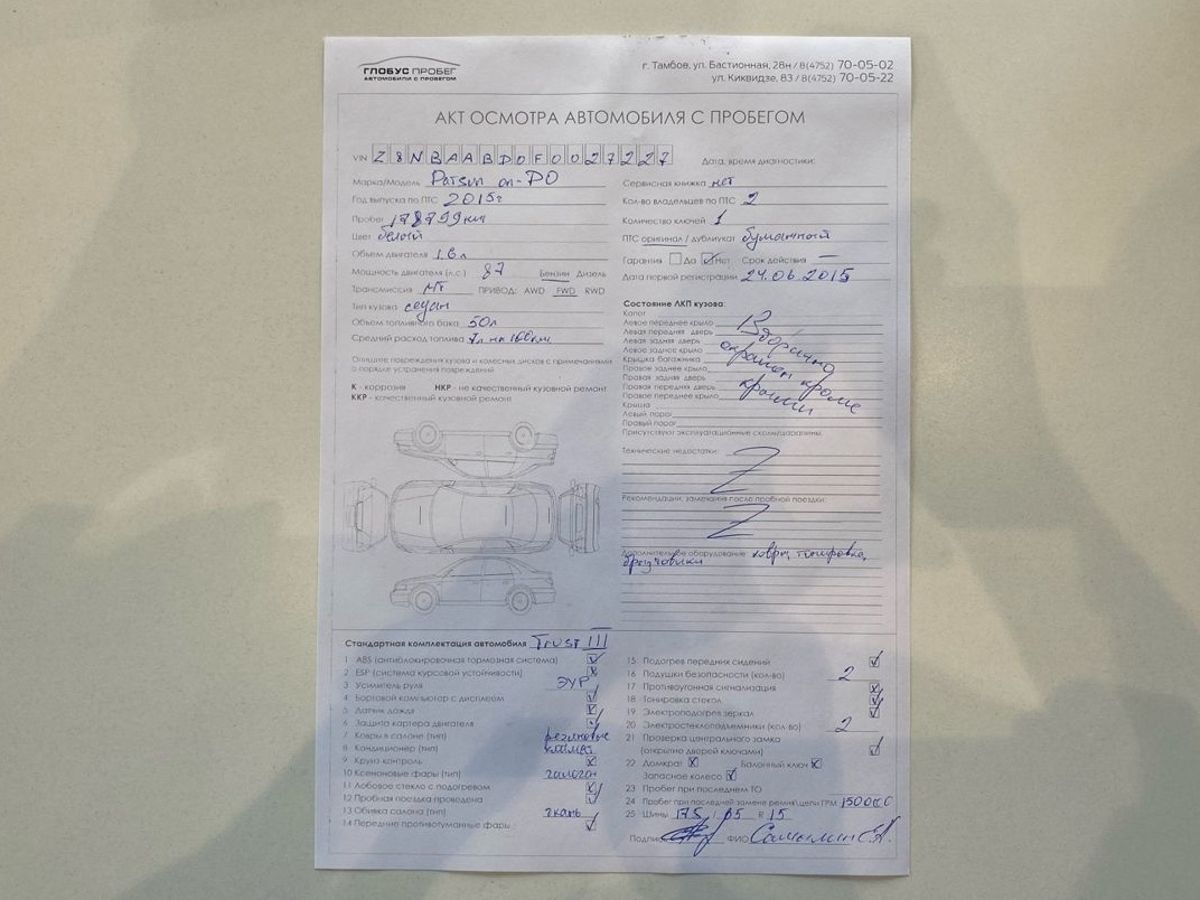 ГЛОБУС ПРОБЕГ
АВТОМОБИЛИ С ПРОБЕГОМ
г. Тамбов, ул. Бастионная, 28н / 8(4752) 70-05-02
ул. Киквидзе, 83 / 8(4752) 70-05-22
АКТ ОСМОТРА АВТОМОБИЛЯ С ПРОБЕГОМ
VIN Z8NBAABD0F0027227
Дата, время диагностики:
Марка/Модель Datsun on-DO
Год выпуска по ПТС 2015г
Пробег 178799км
Цвет белый
Объем двигателя 1.6 л
Мощность двигателя (л.с.) 87 Бензин Дизель
Трансмиссия МТ ПРИВОД: AWD FWD RWD
Тип кузова седан
Объем топливного бака 50л
Средний расход топлива 7л на 100км
Опишите повреждения кузова и колесных дисков с примечаниями
о порядке устранения повреждений
К - коррозия НКР - не качественный кузовной ремонт
ККР - качественный кузовной ремонт
Сервисная книжка нет
Кол-во владельцев по ПТС 2
Количество ключей 1
ПТС оригинал / дубликат бумажный
Гарантия Да Нет Срок действия —
Дата первой регистрации 24.06.2015
Состояние ЛКП кузова:
Капот
Левое переднее крыло
Левая передняя дверь
Левая задняя дверь
Левое заднее крыло
Крышка багажника
Правое заднее крыло
Правая задняя дверь
Правая передняя дверь
Правое переднее крыло
Крыша
Левый порог
Правый порог
Вторично
окрашен кроме
крыши
Присутствуют эксплуатационные сколы/царапины.
Технические недостатки: Z
Рекомендации, замечания после пробной поездки:
Z
Дополнительное оборудование ковры, тонировка,
брызговики
Стандартная комплектация автомобиля Trust III
1 ABS (антиблокировочная тормозная система)
2 ESP (система курсовой устойчивости)
3 Усилитель руля ЭУР
4 Бортовой компьютер с дисплеем
5 Датчик дождя
6 Защита картера двигателя
7 Ковры в салоне (тип) резиновые
8 Кондиционер (тип) климат
9 Круиз-контроль
10 Ксеноновые фары (тип) галоген
11 Лобовое стекло с подогревом
12 Пробная поездка проведена
13 Обивка салона (тип) ткань
14 Передние противотуманные фары
15 Подогрев передних сидений
16 Подушки безопасности (кол-во) 2
17 Противоугонная сигнализация
18 Тонировка стекол
19 Электроподогрев зеркал
20 Электростеклоподъемники (кол-во) 2
21 Проверка центрального замка
(открытие дверей ключами)
22 Домкрат Балонный ключ
Запасное колесо
23 Пробег при последнем ТО
24 Пробег при последней замене ремня/цепи ГРМ 150000
25 Шины 175 / 65 R 15
Подпись ФИО